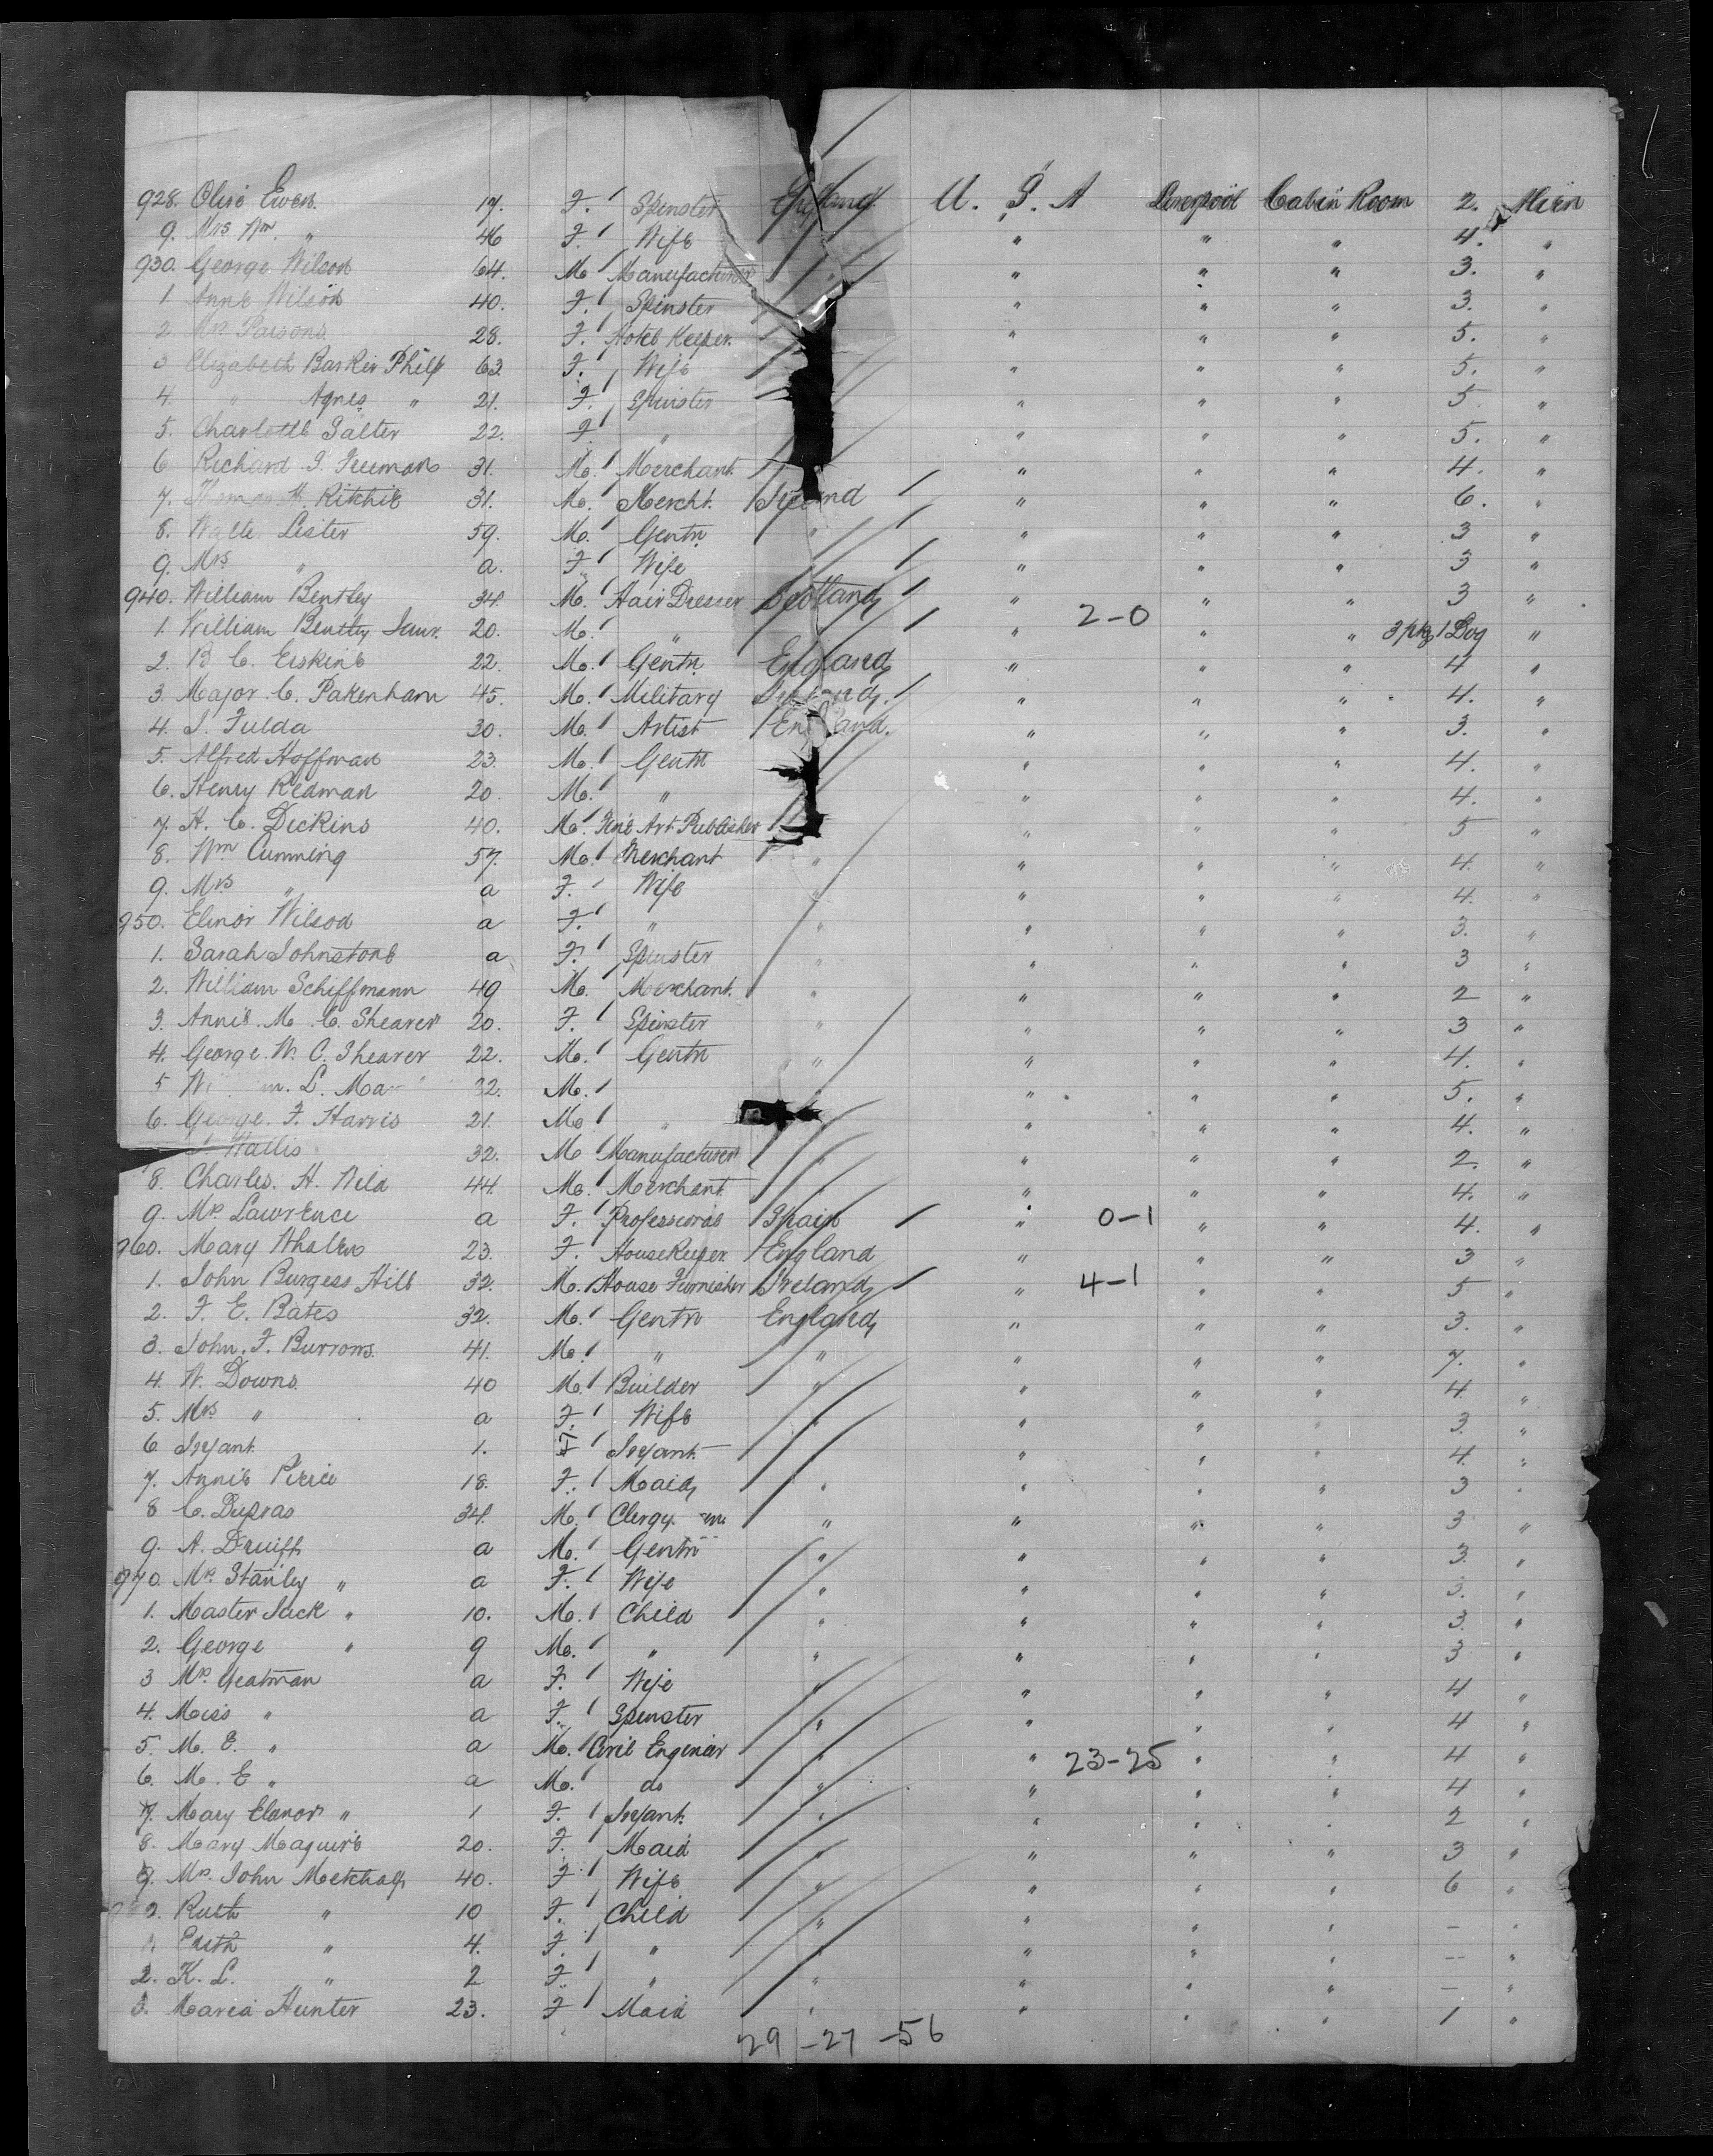 928. Olive Ewen. 17. F. Spinster England U. S. A Liverpool Cabin Room 2. Alien
9. Mrs Wm. " 46 F. Wife " " " 4. "
930. George Wilson 64. M. Manufacturer " " " " 3. "
1 Annie Wilson 40. F. Spinster " " " 3. "
2. Mrs Parsons 28. F. Hotel Keeper. " " " 5. "
3 Elizabeth Barker Philp 63. F. Wife " " " 5. "
4. " Agnes " 21. F. Spinster " " " 5 "
5. Charlotte Salter 22. F. " " " " 5. "
6 Richard Freeman 31. M. Merchant. " " " 4. "
7. Thomas H. Ritchie 31. M. Mercht. " " " 6. "
8. Walter Lister 59. M. Gentn. " " " " 3 "
9. Mrs " a. F. Wife " " " 3 "
940. William Bentley 34. M. Hair Dresser Scotland " " " 3 "
1. William Bentley Junr. 20. M. " " 2-0 " " 3 pkg 1 Dog "
2. B. C. Erskine 22. M. Gentn. England " " " 4 "
3. Major C. Pakenham 45. M. Military Ireland. " " " 4. "
4. S. Fulda 30. M. Artist England. " " " 3. "
5. Alfred Hoffman 23. M. Gentn " " " 4. "
6. Henry Redman 20. M. " " " " 4. "
7. H. C. Dickins 40. M. Fine Art Publisher " " " 5 "
8. Wm Cumming 57. M. Merchant " " " " 4. "
9. Mrs " a F. Wife " " " " 4. "
950. Elinor Wilson a F. " " " " " 3. "
1. Sarah Johnstone a F. Spinster " " " " 3 "
2. William Schiffmann 49 M. Merchant. " " " " 2 "
3. Annie. M. C. Shearer 20. F. Spinster " " " " 3 "
4. George. W. C. Shearer 22. M. Gentn " " " " 4. "
5 L. 32. M. " " " " 5. "
6. George. F. Harris 21. M. " " " " 4. "
Wallis 32. M Manufacturer " " " " 2. "
8. Charles. H. Wild 44. M. Merchant " " " " 4. "
9. Mrs. Lawrence a F. Spain " 0-1 " " 4. "
960. Mary Whalen 23. F. House Keeper. England " " " 3 "
1. John Burgess Hill 32. M. House Furnisher Ireland " 4-1 " " 5 "
2. F. E. Bates 32. M. Gentn England " " " 3. "
3. John. F. Burrows. 41. M. " " " " " 7. "
4. W. Downs. 40 M. Builder " " " " 4. "
5. Mrs " a F. Wife " " " " 3. "
6. Infant. 1. F Infant. " " " 4. "
7. Annie Peirce 18. F. Maid " " " " 3 "
8 C. 34. M. Clergy " " " " 3 "
9. A. Druiff a M. Gentn " " " " 3. "
970. Mrs. Stanley " a F. Wife " " " " 3. "
1. Master Jack " 10. M. Child " " " " 3. "
2. George " 9 M. " " " " " 3 "
3 Mrs. Yeatman a F. Wife " " " " 4 "
4. Miss " a F. Spinster " " " " 4 "
5. M. E. " a M. Civil Engineer " " 23-25 " " 4 "
6. M. E " a M. do " " " " 4 "
7. Mary Elanor " 1 F. Infant. " " " " 2 "
8. Mary Maguire 20. F. Maid " " " " 3 "
9. Mrs. John Metchalf 40. F. Wife " " " " 6 "
Ruth " 10 F. Child " " " " - "
1 Edith " 4. F. " " " " " - "
2. K. L. " 2 F. " " " " " - "
3. Maria Hunter 23. F Maid " " " " 1 "
29 -27 -56